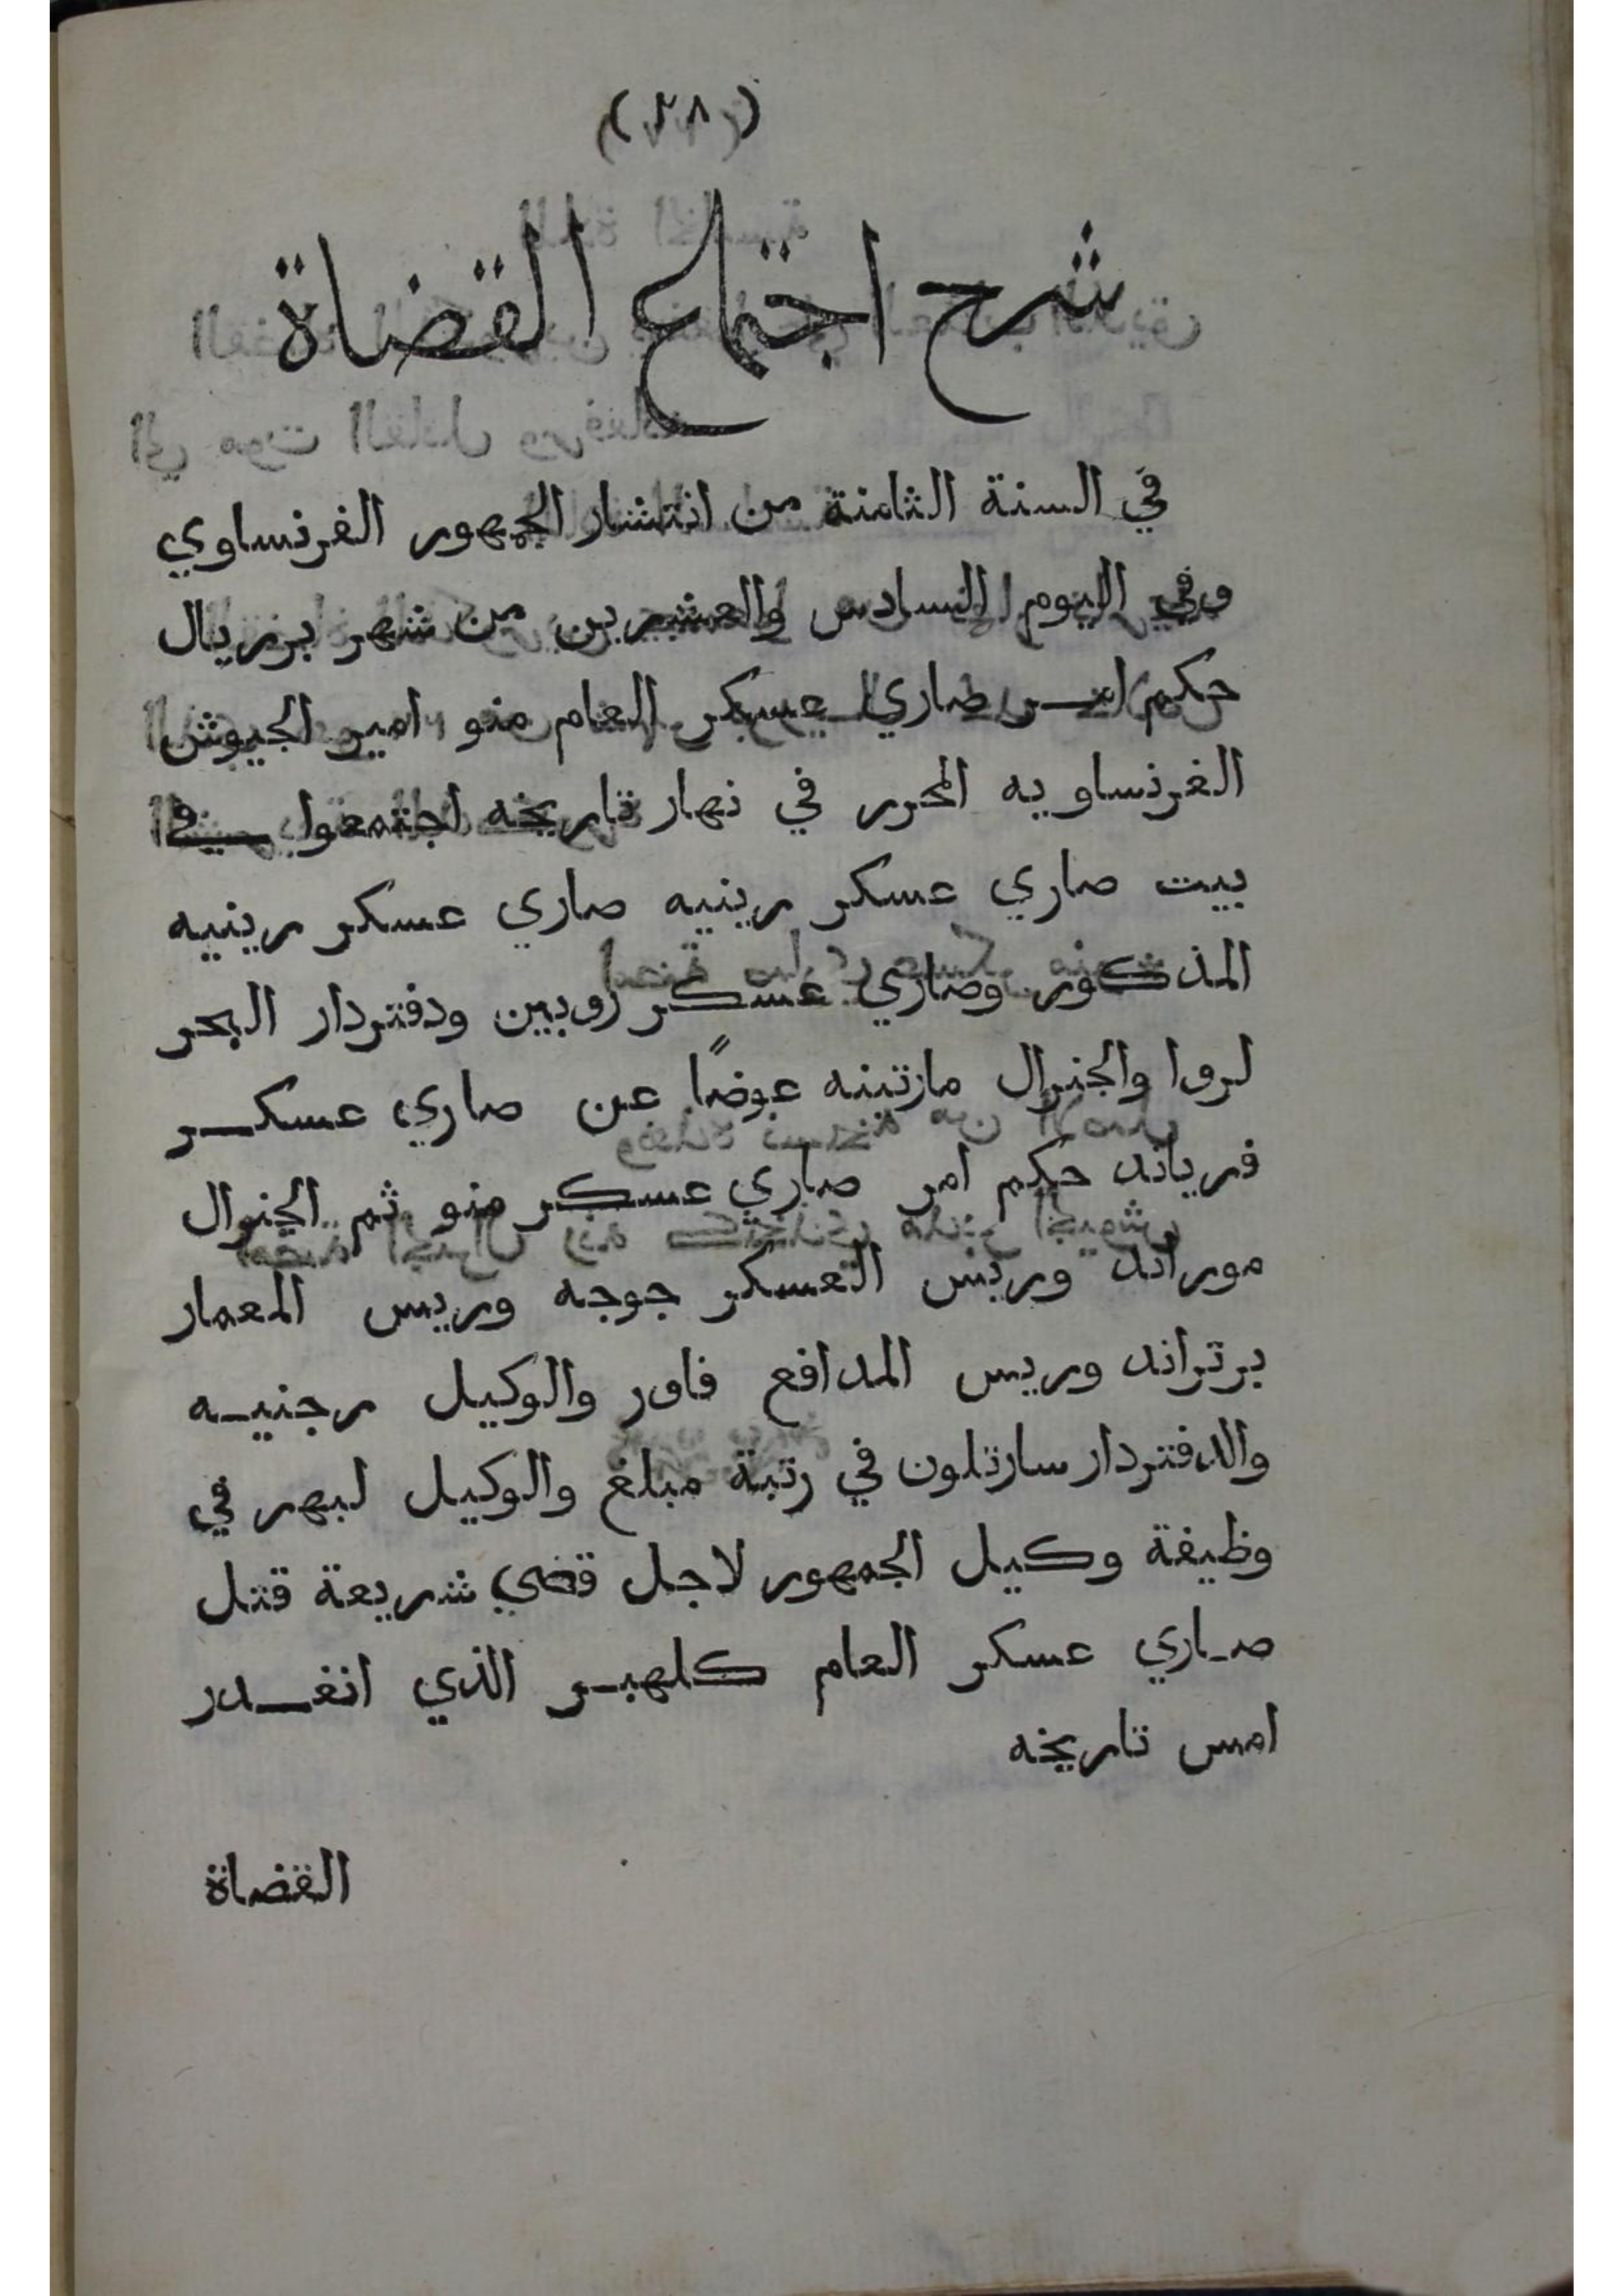 (٢٨)
شرح اجتماع القضاة
في السنة الثامنة من انتشار الجمهور الفرنساوي
وفي اليوم السادس والعشرين من شهر برريال
حكم امر صاري عسكر العام منو امير الجيوش
الفرنساويه المحرر في نهار تاريخه اجتمعوا في
بيت صاري عسكر رينيه صاري عسكر رينيه
المذكور وصاري عسكر روبين ودفتردار البحر
لروا والجنرال مارتينه عوضًا عن صاري عسكر
فرياند حكم امر صاري عسكر منو ثم الجنرال
موراند وريس العسكر جوجه وريس المعمار
برتراند وريس المدافع فاور والوكيل رجنيه
والدفتردار سارتلون في رتبة مبلغ والوكيل لبهر في
وظيفة وكيل الجمهور لاجل قضي شريعة قتل
صاري عسكر العام كلهبر الذي انغدر
امس تاريخه
القضاة